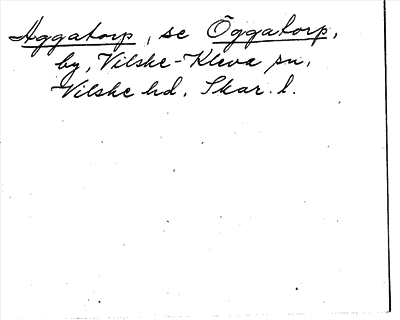 Aggatorp, se Öggatorp,
by, Vilske-Kleva sn,
Vilske hd, Skar. l.